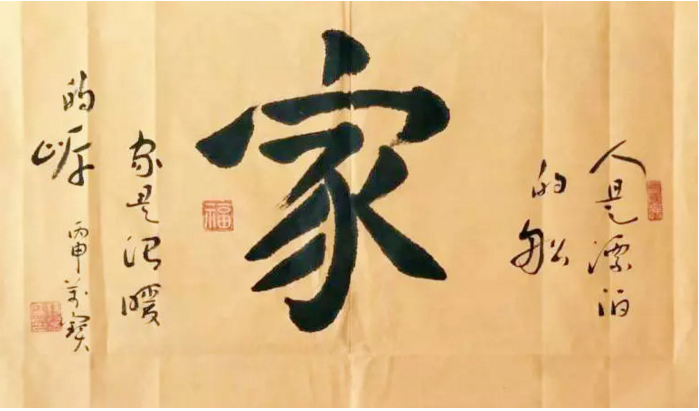 人是漂泊
的船
家
福
家是温暖
的岸
丙申 万宝